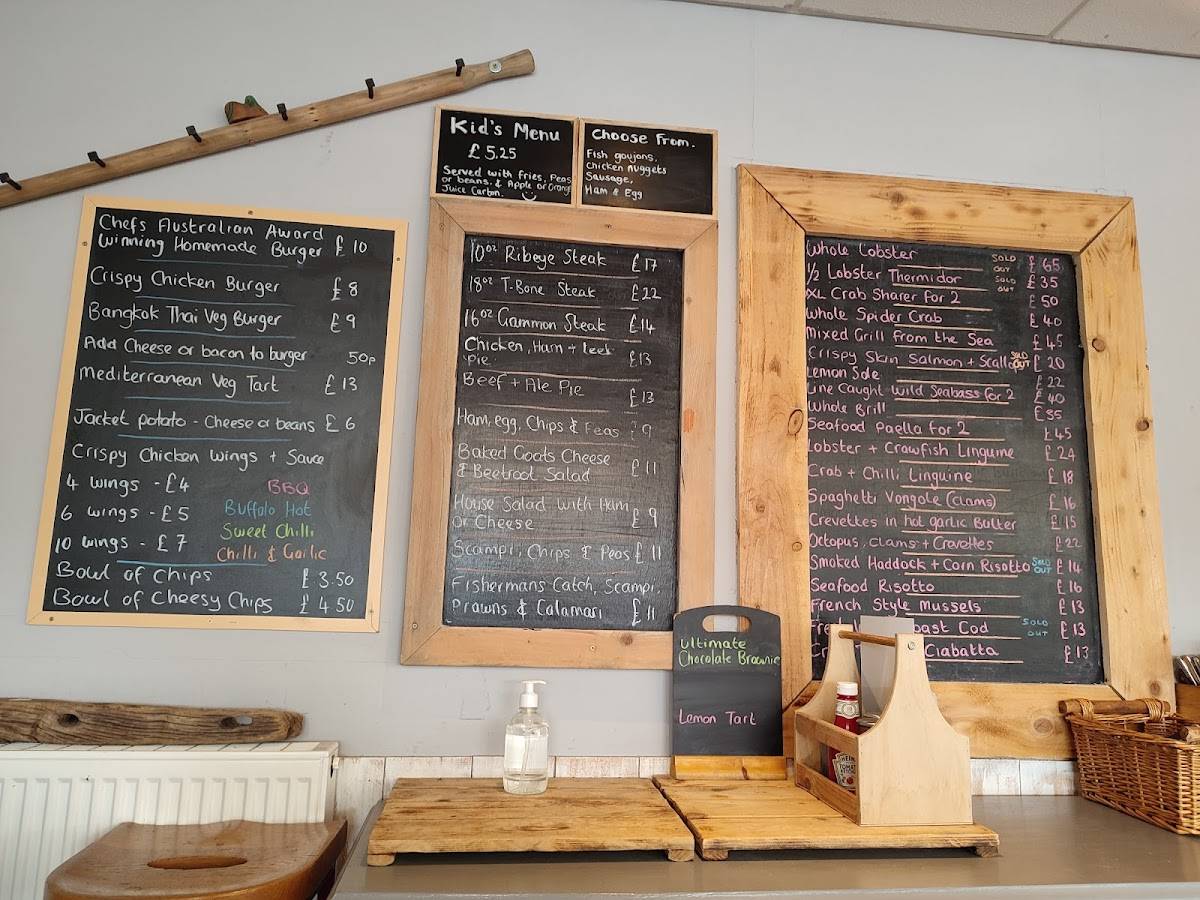 Chefs Australian Award
Winning Homemade Burger £10
Crispy Chicken Burger £8
Bangkok Thai Veg Burger £9
Add Cheese or bacon to burger 50p
Mediterranean Veg Tart £13
Jacket potato - Cheese or beans £6
Crispy Chicken Wings + Sauce
4 wings - £4 BBQ
6 wings - £5 Buffalo Hot
Sweet Chilli
10 wings - £7 Chilli & Garlic
Bowl of Chips £3.50
Bowl of Cheesy Chips £4.50
Kid's Menu
£5.25
Served with fries, Peas
or beans. & Apple or Orange
Juice Carton.
Choose From.
Fish goujons,
Chicken Nuggets
Sausage,
Ham & Egg
10oz Ribeye Steak £17
18oz T-Bone Steak £22
16oz Gammon Steak £14
Chicken, Ham + leek
Pie. £13
Beef + Ale Pie £13
Ham, egg, Chips & Peas £9
Baked Goats Cheese
& Beetroot Salad £11
House Salad with Ham
or Cheese £9
Scampi, Chips & Peas £11
Fishermans Catch, Scampi,
Prawns & Calamari £11
Whole Lobster SOLD OUT £65
1/2 Lobster Thermidor SOLD OUT £35
XL Crab Sharer For 2 £50
Whole Spider Crab £40
Mixed Grill from the Sea £45
Crispy Skin Salmon + Scallop SOLD OUT £20
Lemon Sole £22
Line Caught Wild Seabass for 2 £40
Whole Brill £35
Seafood Paella for 2 £45
Lobster + Crawfish Linguine £24
Crab + Chilli Linguine £18
Spaghetti Vongole (clams) £16
Crevettes in hot garlic Butter £15
Octopus, clams + Crevettes £22
Smoked Haddock + Corn Risotto SOLD OUT £14
Seafood Risotto £16
French Style Mussels £13
Cod SOLD OUT £13
Ciabatta £13
Ultimate
Chocolate Brownie
Lemon Tart
HEINZ
TOMATO